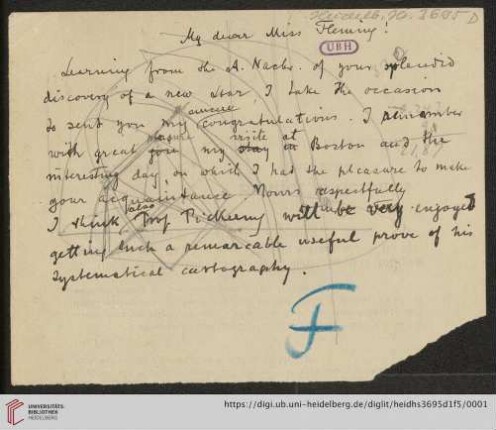 Heidelb. Hs. 3695 D
My dear Miss Fleming!
UBH
Learning from the A. Nachr. of your splendid
discovery of a new star, I take the occasion
to sent you my sincere congratulations. I remember
with great pleasure my visite at Boston and the
interesting day on which I had the pleasure to make
your acquaintance Yours respectfully
I think also Prof Pickering will be very engaged
getting such a remarcable useful prove of his
systematical cartography.
F
UNIVERSITÄTS-
BIBLIOTHEK
HEIDELBERG
https://digi.ub.uni-heidelberg.de/diglit/heidhs3695d1f5/0001